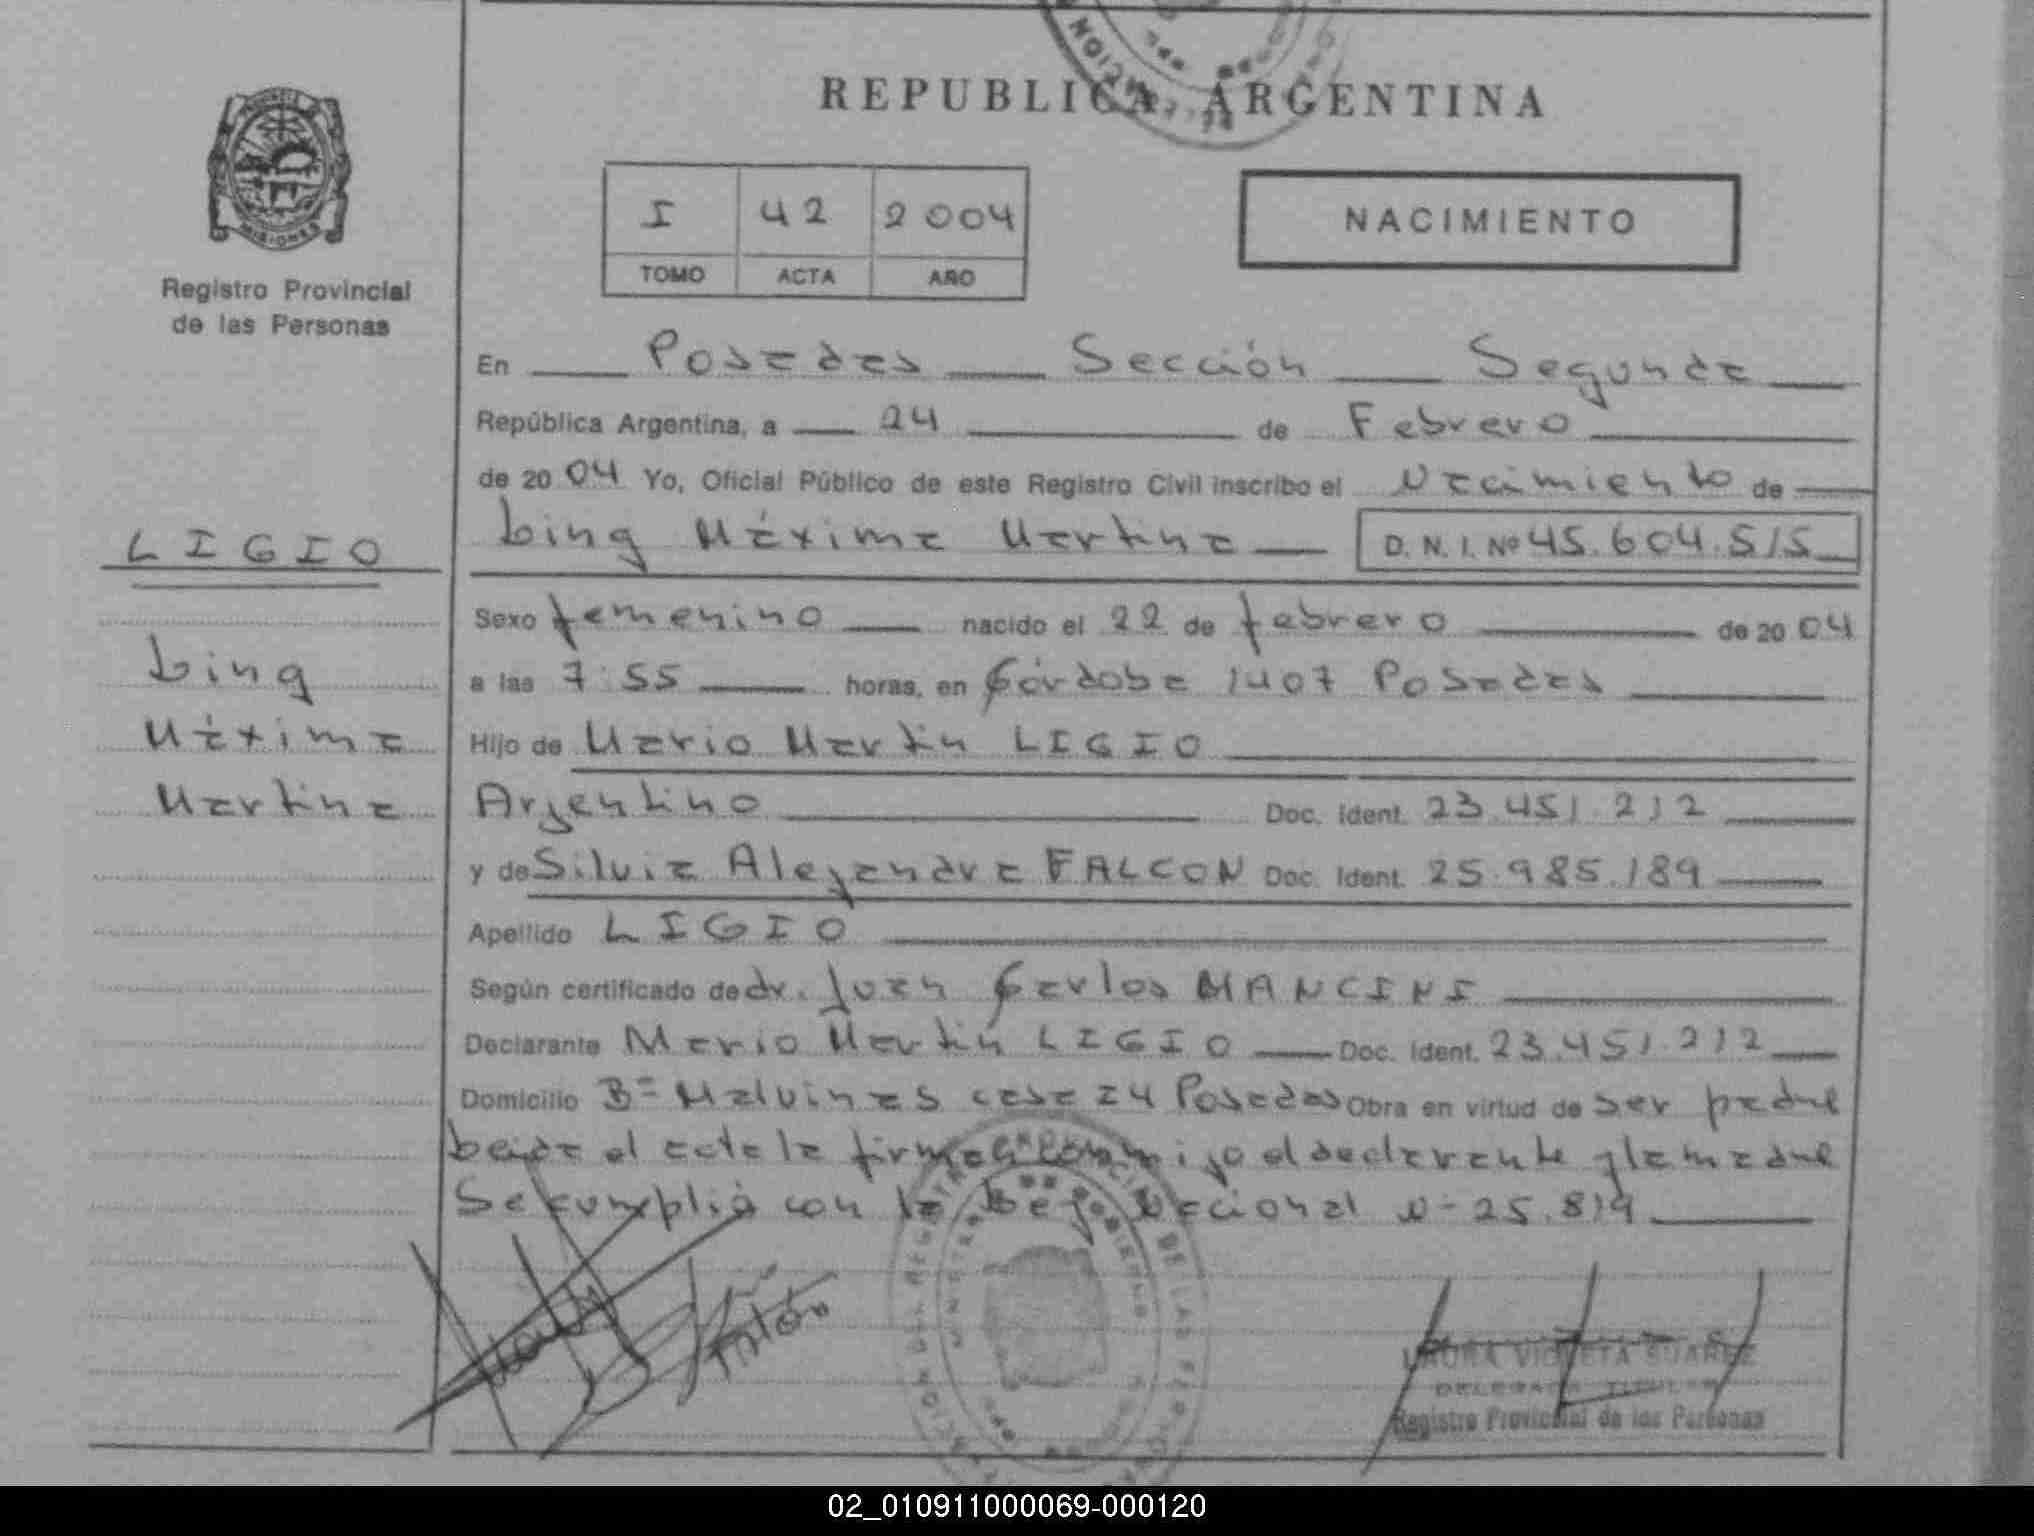 REPUBLICA ARGENTINA
MISIONES
Registro Provincial
de las Personas
I 42 2004
TOMO ACTA AÑO
NACIMIENTO
En Posadas Sección Segunda
República Argentina, a 24 de Febrero
de 2004 Yo, Oficial Público de este Registro Civil inscribo el Nacimiento de
Ling Máxima Martina D. N. I. Nº 45.604.515
LIGIO
Ling
Máxima
Martina
Sexo femenino nacido el 22 de febrero de 2004
a las 7:55 horas, en Córdoba 1407 Posadas
Hijo de Mario Martín LIGIO
Argentino Doc. Ident. 23.451.212
y de Silvia Alejandra FALCON Doc. Ident. 25.985.189
Apellido LIGIO
Según certificado de dr. Juan Carlos MANCINI
Declarante Mario Martín LIGIO Doc. Ident. 23.451.212
Domicilio Bº Malvinas casa 24 Posadas Obra en virtud de ser padre
el acta la firman conmigo el declarante y la madre
Se cumplió con la Ley Nacional Nº 25.819
LAURA VIOLETA SUAREZ
DELEGADA TITULAR
Registro Provincial de las Personas
02_010911000069-000120